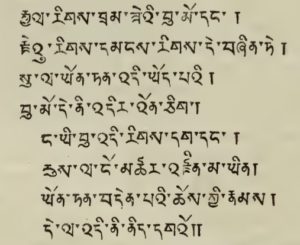 རྒྱལ་རིགས་བྲམ་ཟེའི་བུ་མོ་དང་ །
རྗེའུ་རིགས་དམངས་རིགས་དེ་བཞིན་ཏེ །
སུ་ལ་ཡོན་ཏན་འདི་ཡོད་པའི །
བུ་མོ་དེ་ནི་འདིར་འོན་ཅིག །
ང་ཡི་བུ་འདི་རིགས་དག་དང་ །
རུས་ལ་ངོ་མཚར་འཛིན་མ་ཡིན།
ཡོན་ཏན་བདེན་པའི་ཆོས་ཀྱི་རྣམས།
དེ་ལ་འདི་ནི་ཉིད་དགའོ།།